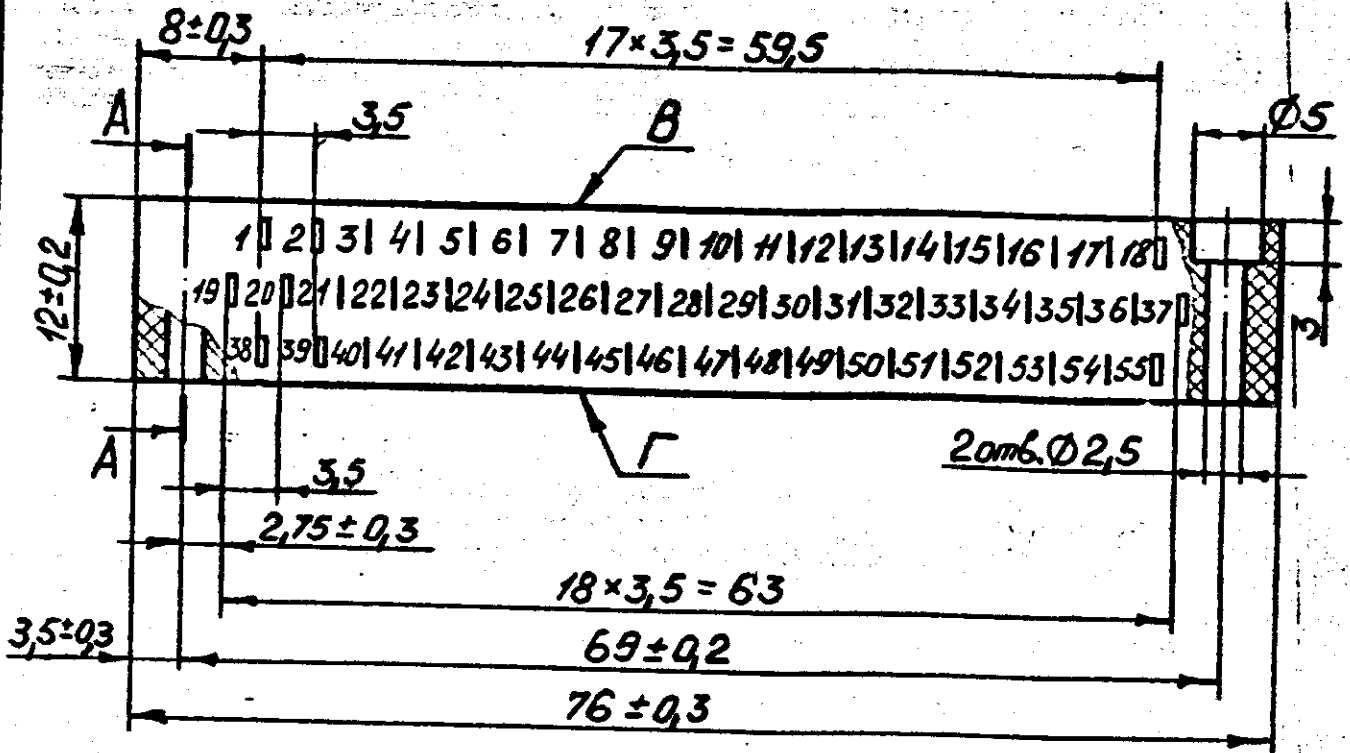 8±0,3
17×3,5=59,5
A
3,5
В
Ø5
1 2 3 4 5 6 7 8 9 10 11 12 13 14 15 16 17 18
12±0,2
19 20 21 22 23 24 25 26 27 28 29 30 31 32 33 34 35 36 37
3
38 39 40 41 42 43 44 45 46 47 48 49 50 51 52 53 54 55
A
Г
2отв.Ø2,5
3,5
2,75±0,3
18×3,5=63
3,5±0,3
69±0,2
76±0,3